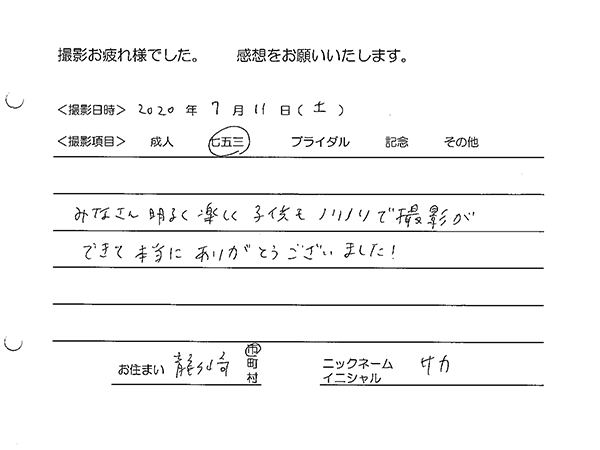 撮影お疲れ様でした。　　感想をお願いいたします。
＜撮影日時＞ 2020 年 7 月 11 日（土）
＜撮影項目＞　成人　七五三　ブライダル　記念　その他
みなさん 明るく 楽しく 子供も ノリノリで撮影が
できて 本当に ありがとうございました！
お住まい 龍ケ崎 市 町 村　ニックネーム イニシャル サカ